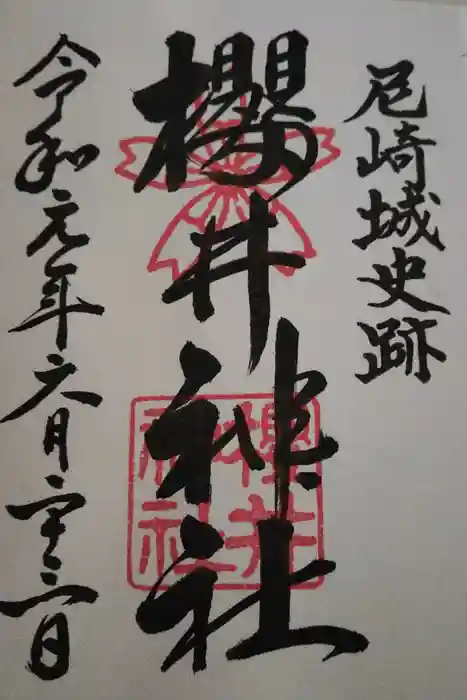 尼崎城史跡
櫻井神社
櫻井
神社
令和元年六月二十三日